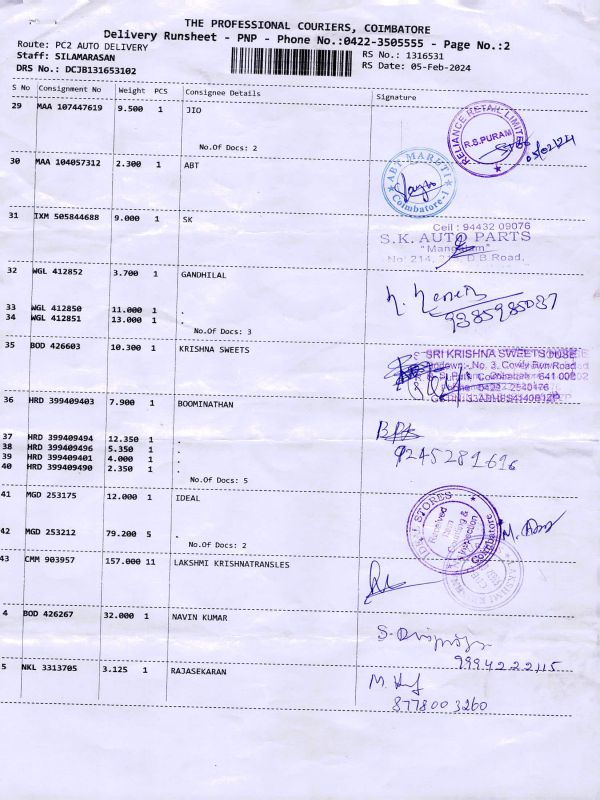 THE PROFESSIONAL COURIERS, COIMBATORE
Delivery Runsheet - PNP - Phone No.:0422-3505555 - Page No.:2
Route: PC2 AUTO DELIVERY
RS No.: 1316531
Staff: SILAMARASAN
RS Date: 05-Feb-2024
DRS No.: DCJB131653102
S No Consignment No Weight PCS Consignee Details Signature
29 MAA 107447619 9.500 1 JIO
RELIANCE RETAIL LIMITED
R.S.PURAM
05/02/24
No.Of Docs: 2
30 MAA 104057312 2.300 1 ABT
ABT MARUTI
Coimbatore-1
31 IXM 505844688 9.000 1 SK
Cell : 94432 09076
S.K. AUTO PARTS
No. 214, D.B Road,
32 WGL 412852 3.700 1 GANDHILAL
33 WGL 412850 11.000 1 .
34 WGL 412851 13.000 1 .
9385985037
No.Of Docs: 3
35 BOD 426603 10.300 1 KRISHNA SWEETS
SRI KRISHNA SWEETS
No. 3, Cowly Brown Road
Coimbatore 641 002
36 HRD 399409403 7.900 1 BOOMINATHAN
37 HRD 399409494 12.350 1 .
38 HRD 399409496 5.350 1 .
39 HRD 399409401 4.000 1 .
40 HRD 399409490 2.350 1 .
9245281616
No.Of Docs: 5
41 MGD 253175 12.000 1 IDEAL
STORES
Received
Counting &
Inspection
Coimbatore
42 MGD 253212 79.200 5 .
No.Of Docs: 2
43 CMM 903957 157.000 11 LAKSHMI KRISHNATRANSLES
4 BOD 426267 32.000 1 NAVIN KUMAR
9994222115
5 NKL 3313705 3.125 1 RAJASEKARAN
8778003260